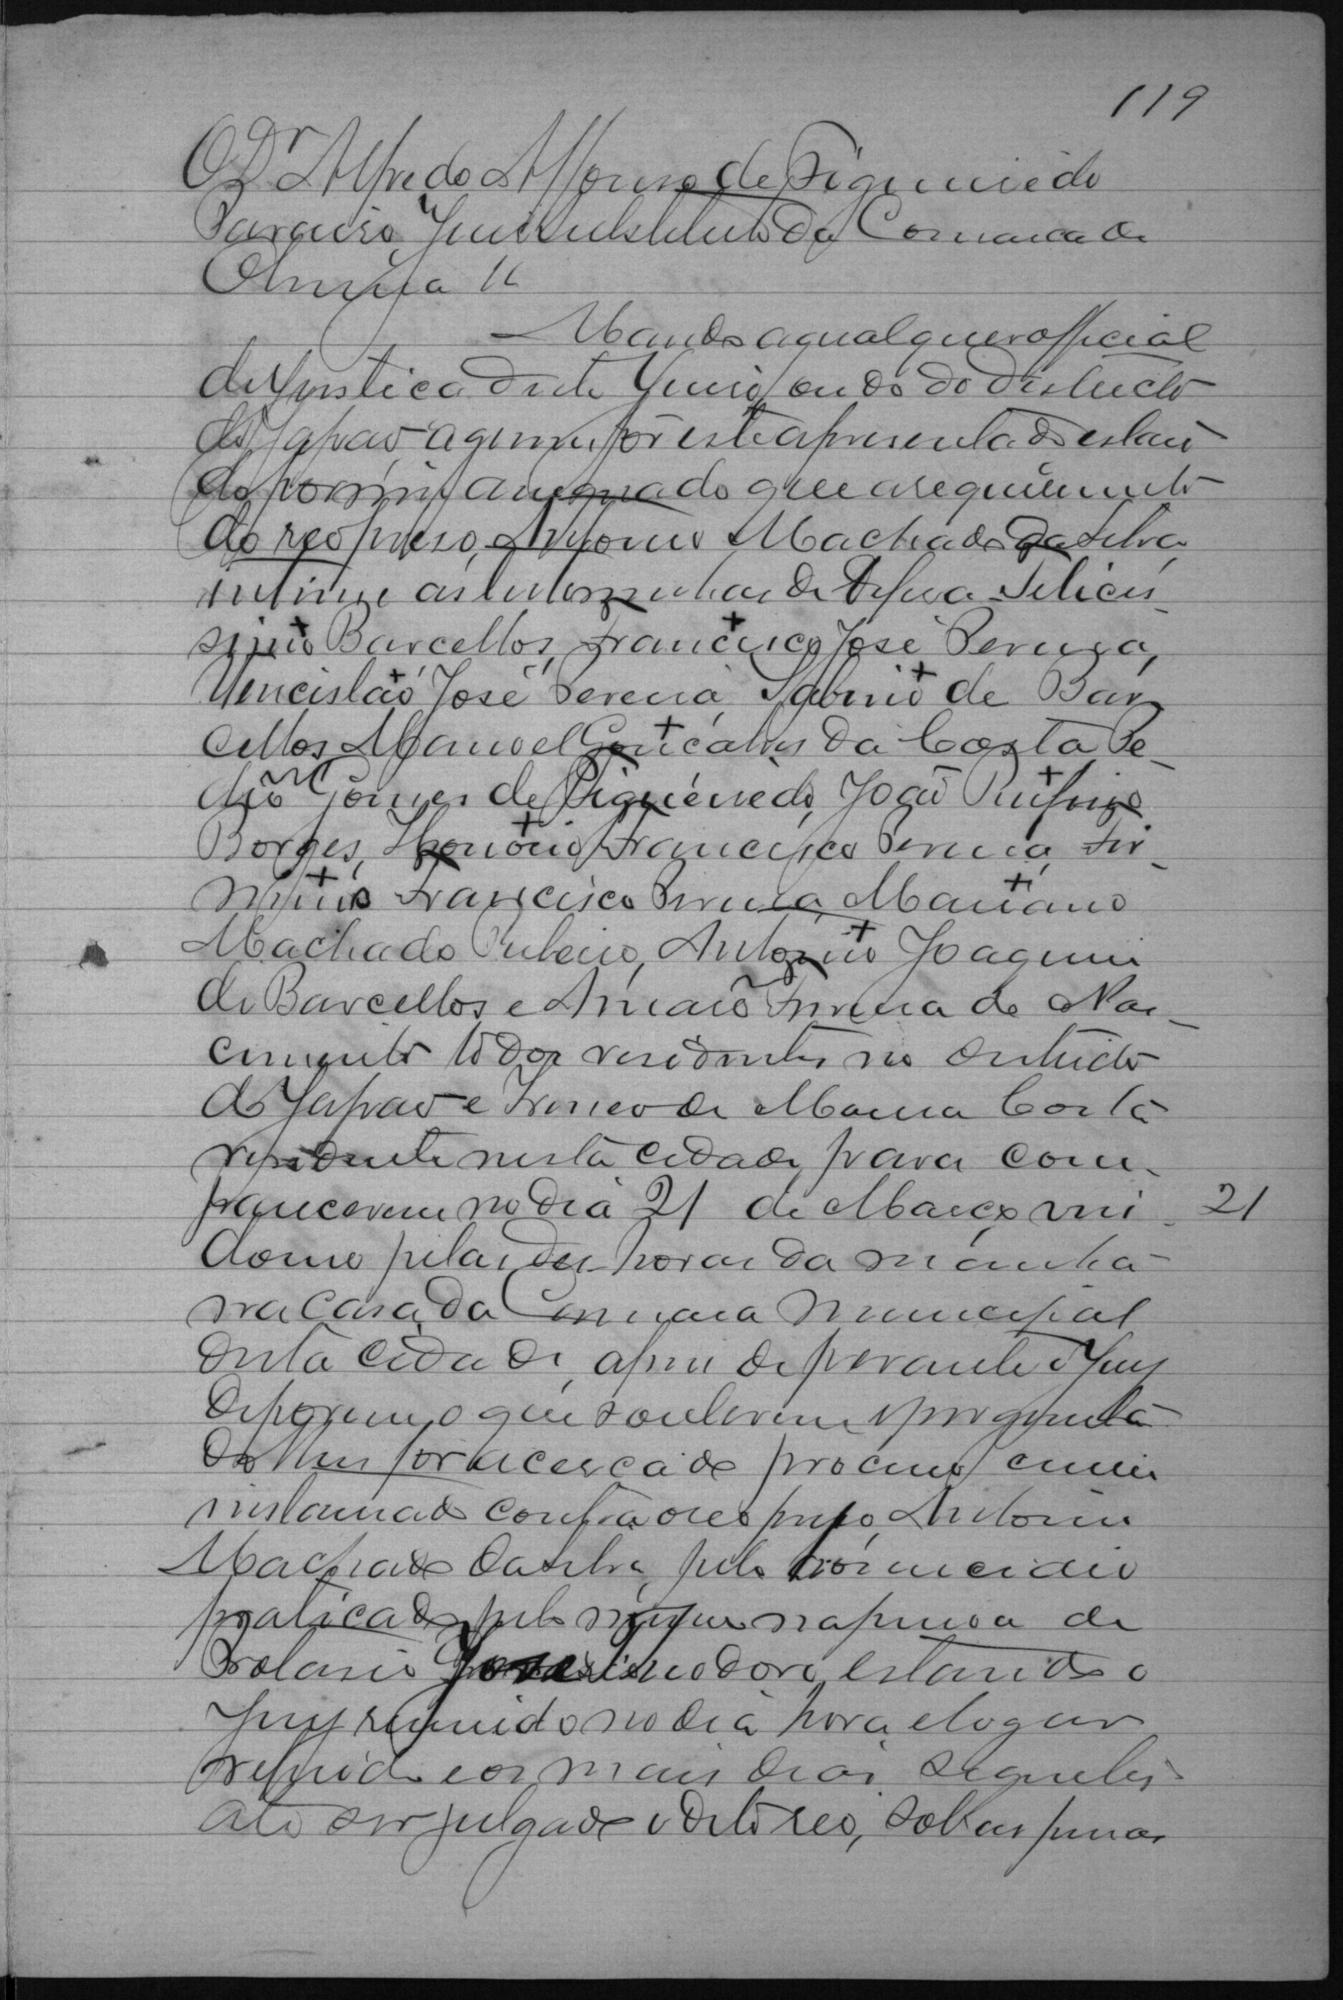 119
O Dr Alfredo Affonso de Figueiredo
Paraiso, Juiz substituto da Comarca de
&
Mando a qualquer official
de Justiça deste Juizo, ou do do districto
do a quem for este apresentado estan
do por mim assignado que a requerimento
do reo preso, Antonio Machado da Silva
intime as testemunhas de defesa Felicis-
simo Barcellos, Francisco José Pereira,
Vencislão José Pereira, Sabino de Bar
cellos, Manoel Gonçalves da Costa, Pe-
dro Gomes de Figueiredo, João Rufino
Borges, Honorio Francisco Pereira, Fir-
mino Francisco Pereira, Mariano
Machado Ribeiro, Antonio Joaquim
de Barcellos e Amaro Ferreira do Nas-
cimento todos residentes no districto
do e de Costa
residente nesta cidade, para com-
parecerem no dia 21 de Março vin-
21
douro pelas dez horas da manhã
na casa da Camara Municipal
desta cidade, afim de perante o Jury
deporem o que souberem e pergunta
do lhes for acerca do processo crime
instaurado contra o reo preso, Antonio
Machado da Silva, pelo homicidio
praticado pelo mesmo na pessoa de
José estando o
Jury reunido no dia, hora, e logar
referido e os mais dias seguintes
até ser julgado o dito reo, sob as penas